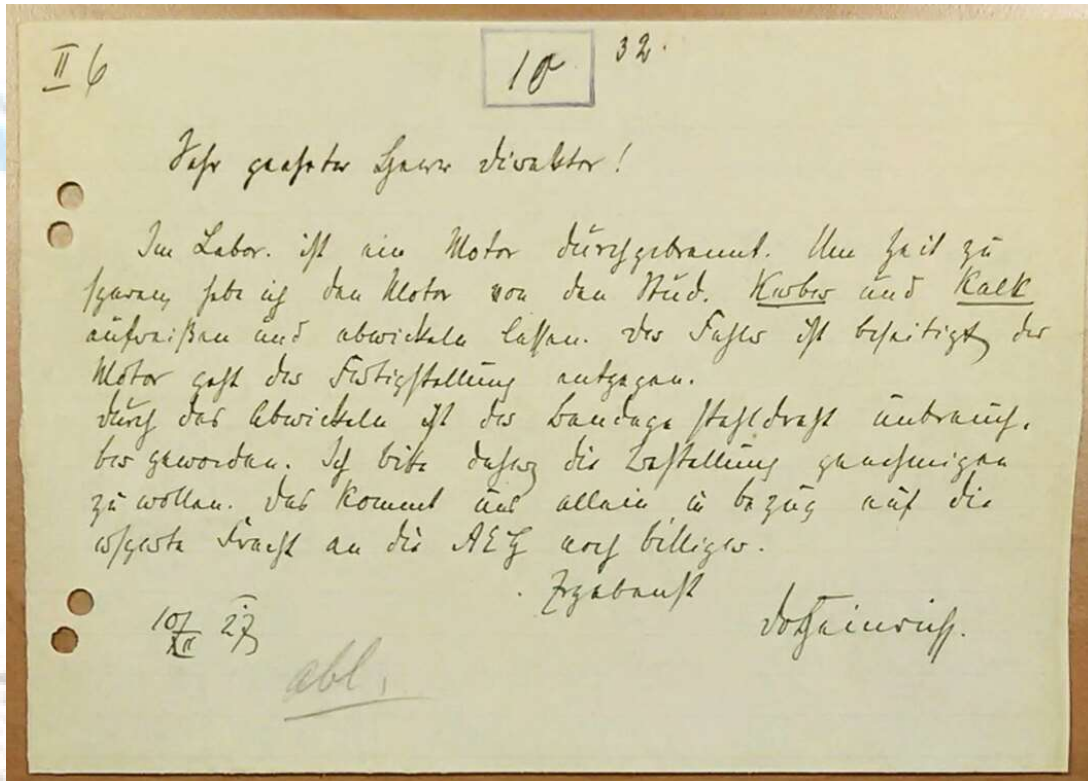 II 6
10
32.
Sehr geehrter Herr Direktor!
Im Labor. ist ein Motor durchgebrannt. Um Zeit zu
sparen, habe ich den Motor von den Stud. Kerber und Kalk
aufreißen und abwickeln lassen. Der Fehler ist beseitigt, der
Motor geht der Fertigstellung entgegen.
Durch das Abwickeln ist der Bandage stahldraht unbrauch-
bar geworden. Ich bitte daher, die Bestellung genehmigen
zu wollen. Das kommt uns allein in bezug auf die
ersparte Fracht an die AEG noch billiger.
Ergebenst
10/XII 27
Heinrich.
abl.